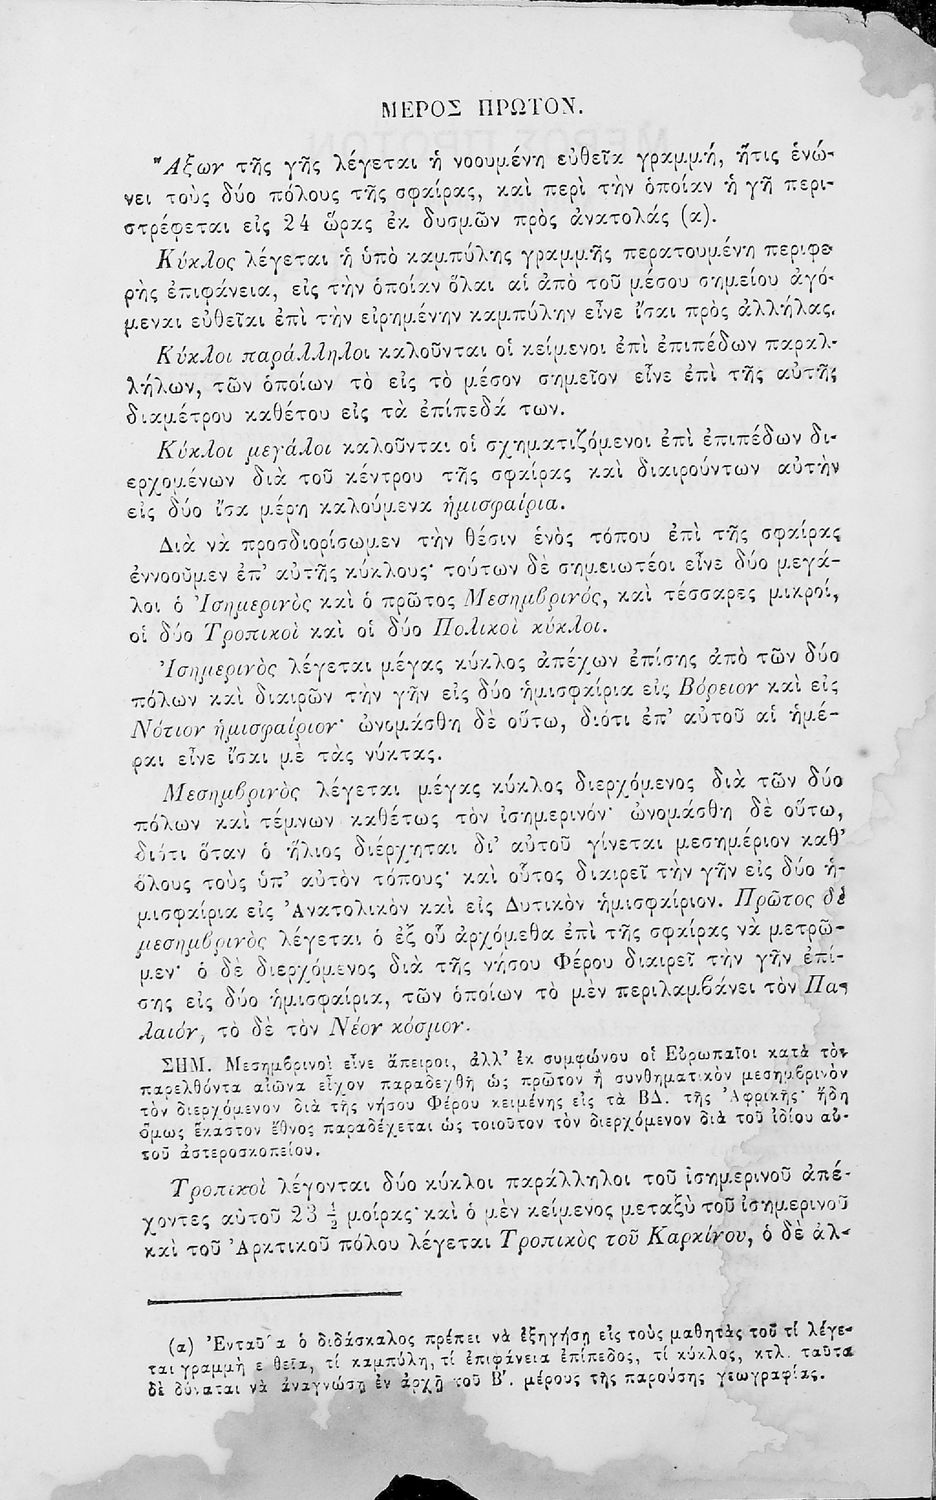 ΜΕΡΟΣ ΠΡΩΤΟΝ.
Ἄξων τῆς γῆς λέγεται ἡ νοουμένη εὐθεῖα γραμμή, ἥτις ἑνώ-
νει τοὺς δύο πόλους τῆς σφαίρας, καὶ περὶ τὴν ὁποίαν ἡ γῆ περι-
στρέφεται εἰς 24 ὥρας ἐκ δυσμῶν πρὸς ἀνατολάς (α).
Κύκλος λέγεται ἡ ὑπὸ καμπύλης γραμμῆς περατουμένη περιφε-
ρὴς ἐπιφάνεια, εἰς τὴν ὁποίαν ὅλαι αἱ ἀπὸ τοῦ μέσου σημείου ἀγό-
μεναι εὐθεῖαι ἐπὶ τὴν εἰρημένην καμπύλην εἶνε ἴσαι πρὸς ἀλλήλας.
Κύκλοι παράλληλοι καλοῦνται οἱ κείμενοι ἐπὶ ἐπιπέδων παραλ-
λήλων, τῶν ὁποίων τὸ εἰς τὸ μέσον σημεῖον εἶνε ἐπὶ τῆς αὐτῆς
διαμέτρου καθέτου εἰς τὰ ἐπίπεδά των.
Κύκλοι μεγάλοι καλοῦνται οἱ σχηματιζόμενοι ἐπὶ ἐπιπέδων δι-
ερχομένων διὰ τοῦ κέντρου τῆς σφαίρας καὶ διαιρούντων αὐτὴν
εἰς δύο ἴσα μέρη καλούμενα ἡμισφαίρια.
Διὰ νὰ προσδιορίσωμεν τὴν θέσιν ἑνὸς τόπου ἐπὶ τῆς σφαίρας
ἐννοοῦμεν ἐπ' αὐτῆς κύκλους· τούτων δὲ σημειωτέοι εἶνε δύο μεγά-
λοι ὁ Ἰσημερινὸς καὶ ὁ πρῶτος Μεσημβρινός, καὶ τέσσαρες μικροί,
οἱ δύο Τροπικοὶ καὶ οἱ δύο Πολικοὶ κύκλοι.
Ἰσημερινὸς λέγεται μέγας κύκλος ἀπέχων ἐπίσης ἀπὸ τῶν δύο
πόλων καὶ διαιρῶν τὴν γῆν εἰς δύο ἡμισφαίρια εἰς Βόρειον καὶ εἰς
Νότιον ἡμισφαίριον· ὠνομάσθη δὲ οὕτω, διότι ἐπ' αὐτοῦ αἱ ἡμέ-
ραι εἶνε ἴσαι μὲ τὰς νύκτας.
Μεσημβρινὸς λέγεται μέγας κύκλος διερχόμενος διὰ τῶν δύο
πόλων καὶ τέμνων καθέτως τὸν ἰσημερινόν· ὠνομάσθη δὲ οὕτω,
διότι ὅταν ὁ ἥλιος διέρχηται δι' αὐτοῦ γίνεται μεσημέριον καθ'
ὅλους τοὺς ὑπ' αὐτὸν τόπους· καὶ οὗτος διαιρεῖ τὴν γῆν εἰς δύο ἡ-
μισφαίρια εἰς Ἀνατολικὸν καὶ εἰς Δυτικὸν ἡμισφαίριον. Πρῶτος δὲ
μεσημβρινὸς λέγεται ὁ ἐξ οὗ ἀρχόμεθα ἐπὶ τῆς σφαίρας νὰ μετρῶ-
μεν· ὁ δὲ διερχόμενος διὰ τῆς νήσου Φέρου διαιρεῖ τὴν γῆν ἐπί-
σης εἰς δύο ἡμισφαίρια, τῶν ὁποίων τὸ μὲν περιλαμβάνει τὸν Πα-
λαιόν, τὸ δὲ τὸν Νέον κόσμον.
ΣΗΜ. Μεσημβρινοὶ εἶνε ἄπειροι, ἀλλ' ἐκ συμφώνου οἱ Εὐρωπαῖοι κατὰ τὸν
παρελθόντα αἰῶνα εἶχον παραδεχθῆ ὡς πρῶτον ἢ συνθηματικὸν μεσημβρινὸν
τὸν διερχόμενον διὰ τῆς νήσου Φέρου κειμένης εἰς τὰ ΒΔ. τῆς Ἀφρικῆς· ἤδη
ὅμως ἕκαστον ἔθνος παραδέχεται ὡς τοιοῦτον τὸν διερχόμενον διὰ τοῦ ἰδίου αὐ-
τοῦ ἀστεροσκοπείου.
Τροπικοὶ λέγονται δύο κύκλοι παράλληλοι τοῦ ἰσημερινοῦ ἀπέ-
χοντες αὐτοῦ 23 ½ μοίρας· καὶ ὁ μὲν κείμενος μεταξὺ τοῦ ἰσημερινοῦ
καὶ τοῦ Ἀρκτικοῦ πόλου λέγεται Τροπικὸς τοῦ Καρκίνου, ὁ δὲ ἀλ-
(α) Ἐνταῦθα ὁ διδάσκαλος πρέπει νὰ ἐξηγήσῃ εἰς τοὺς μαθητάς του τί λέγε-
ται γραμμὴ εὐθεῖα, τί καμπύλη, τί ἐπιφάνεια ἐπίπεδος, τί κύκλος, κτλ. ταῦτα
δὲ δύναται νὰ ἀναγνώσῃ ἐν ἀρχῇ τοῦ Β′. μέρους τῆς παρούσης γεωγραφίας.